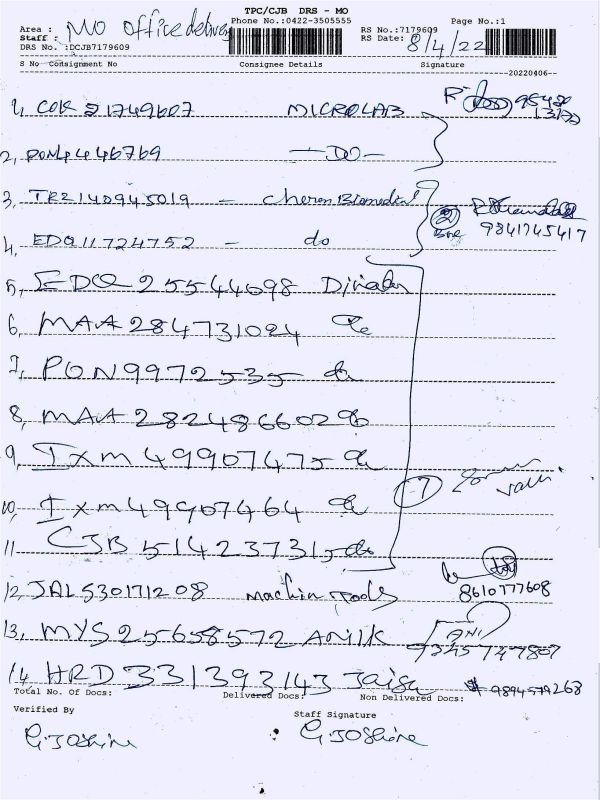 TPC/CJB DRS - MO
Area : MO office delivery Phone No.:0422-3505555 RS No.:7179609 Page No.:1
Staff :
DRS No. :DCJB7179609 RS Date: 8/4/22
S No Consignment No Consignee Details Signature
20220406
1, COK 21749607 MICROLAB
2, PON4446769 -DO-
3, TRZ140945019 - Cheron Biomedical
4, EDQ11724752 - do 9841745417
5, EDQ 25544098
6, MAA 284731024 do
7, PON9972535 do
8, MAA 282486602 do
9, IXM 49907475 do
10, IXM 49907464 do 7
11 CJB 514237315 do
12, JALS30171208 Machin Tools 8610777608
13, MYS25658572 ANILK 9345747807
14 HRD 331393143 Jaisu 9894579268
Total No. Of Docs: Delivered Docs: Non Delivered Docs:
Verified By Staff Signature
G. JOShine G. JOShine